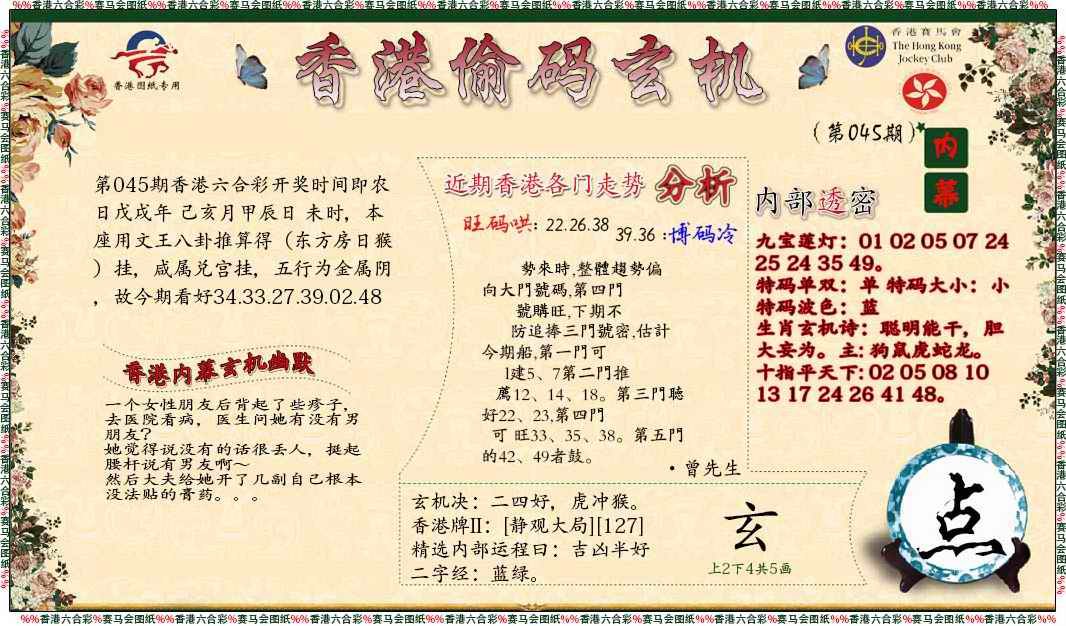 %%香港六合彩%赛马会图纸%%香港六合彩%赛马会图纸%%香港六合彩%赛马会图纸%%香港六合彩%赛马会图纸%%香港六合彩%赛马会图纸%%香港六合彩%赛马会图纸%%香港六合彩%%
香港图纸专用
香港偷码玄机
香港賽馬會
The Hong Kong
Jockey Club
(第045期)
内
幕
第045期香港六合彩开奖时间即农
日戊戌年 己亥月甲辰日 未时，本
座用文王八卦推算得（东方房日猴
）挂，咸属兑宫挂，五行为金属阴
，故今期看好34.33.27.39.02.48
香港内幕玄机幽默
一个女性朋友后背起了些疹子，
去医院看病，医生问她有没有男
朋友?
她觉得说没有的话很丢人，挺起
腰杆说有男友啊～
然后大夫给她开了几副自己根本
没法贴的膏药。。。
近期香港各门走势 分析
旺码哄: 22.26.38
39.36 :博码冷
勢來時,整體趨勢偏
向大門號碼,第四門
號購旺,下期不
防追捧三門號密,估計
今期船,第一門可
l建5、7第二門推
薦12、14、18。第三門聽
好22、23,第四門
可 旺33、35、38。第五門
的42、49者鼓。
·曾先生
内部透密
九宝莲灯：01 02 05 07 24
25 24 35 49。
特码单双：单 特码大小：小
特码波色：蓝
生肖玄机诗：聪明能干，胆
大妄为。主: 狗鼠虎蛇龙。
十指平天下: 02 05 08 10
13 17 24 26 41 48。
玄机决：二四好，虎冲猴。
香港牌II：[静观大局][127]
精选内部运程曰：吉凶半好
二字经：蓝绿。
玄
上2下4共5画
点
%%香港六合彩%赛马会图纸%%香港六合彩%赛马会图纸%%香港六合彩%赛马会图纸%%香港六合彩%赛马会图纸%%香港六合彩%赛马会图纸%%香港六合彩%赛马会图纸%%香港六合彩%%